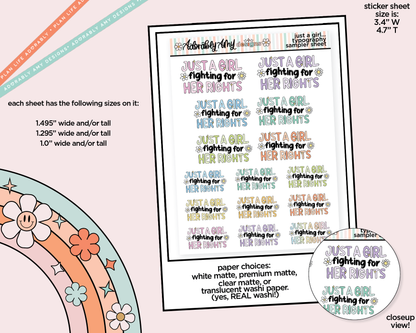 PLAN LIFE ADORABLY • ADORABLY AMY DESIGNS •
PLAN LIFE ADORABLY • ADORABLY AMY DESIGNS •
sticker sheet
size is:
3.4" W
4.7" T
each sheet has the following sizes on it:
1.495" wide and/or tall
1.295" wide and/or tall
1.0" wide and/or tall
Adorably Amy
just a girl...
typography
sampler sheet
JUST A GIRL
fighting for
HER RIGHTS
JUST A GIRL
fighting for
HER RIGHTS
JUST A GIRL
fighting for
HER RIGHTS
JUST A GIRL
fighting for
HER RIGHTS
JUST A GIRL
fighting for
HER RIGHTS
JUST A GIRL
fighting for
HER RIGHTS
JUST A GIRL
fighting for
HER RIGHTS
JUST A GIRL
fighting for
HER RIGHTS
JUST A GIRL
fighting for
HER RIGHTS
JUST A GIRL
fighting for
HER RIGHTS
JUST A GIRL
fighting for
HER RIGHTS
JUST A GIRL
fighting for
HER RIGHTS
JUST A GIRL
fighting for
HER RIGHTS
JUST A GIRL
fighting for
HER RIGHTS
JUST A GIRL
fighting for
HER RIGHTS
paper choices:
white matte, premium matte,
clear matte, or
translucent washi paper.
(yes, REAL washi!)
sampler
JUST A GIRL
fighting for
HER RIGHTS
JUST A GIRL
fighting for
closeup
view!